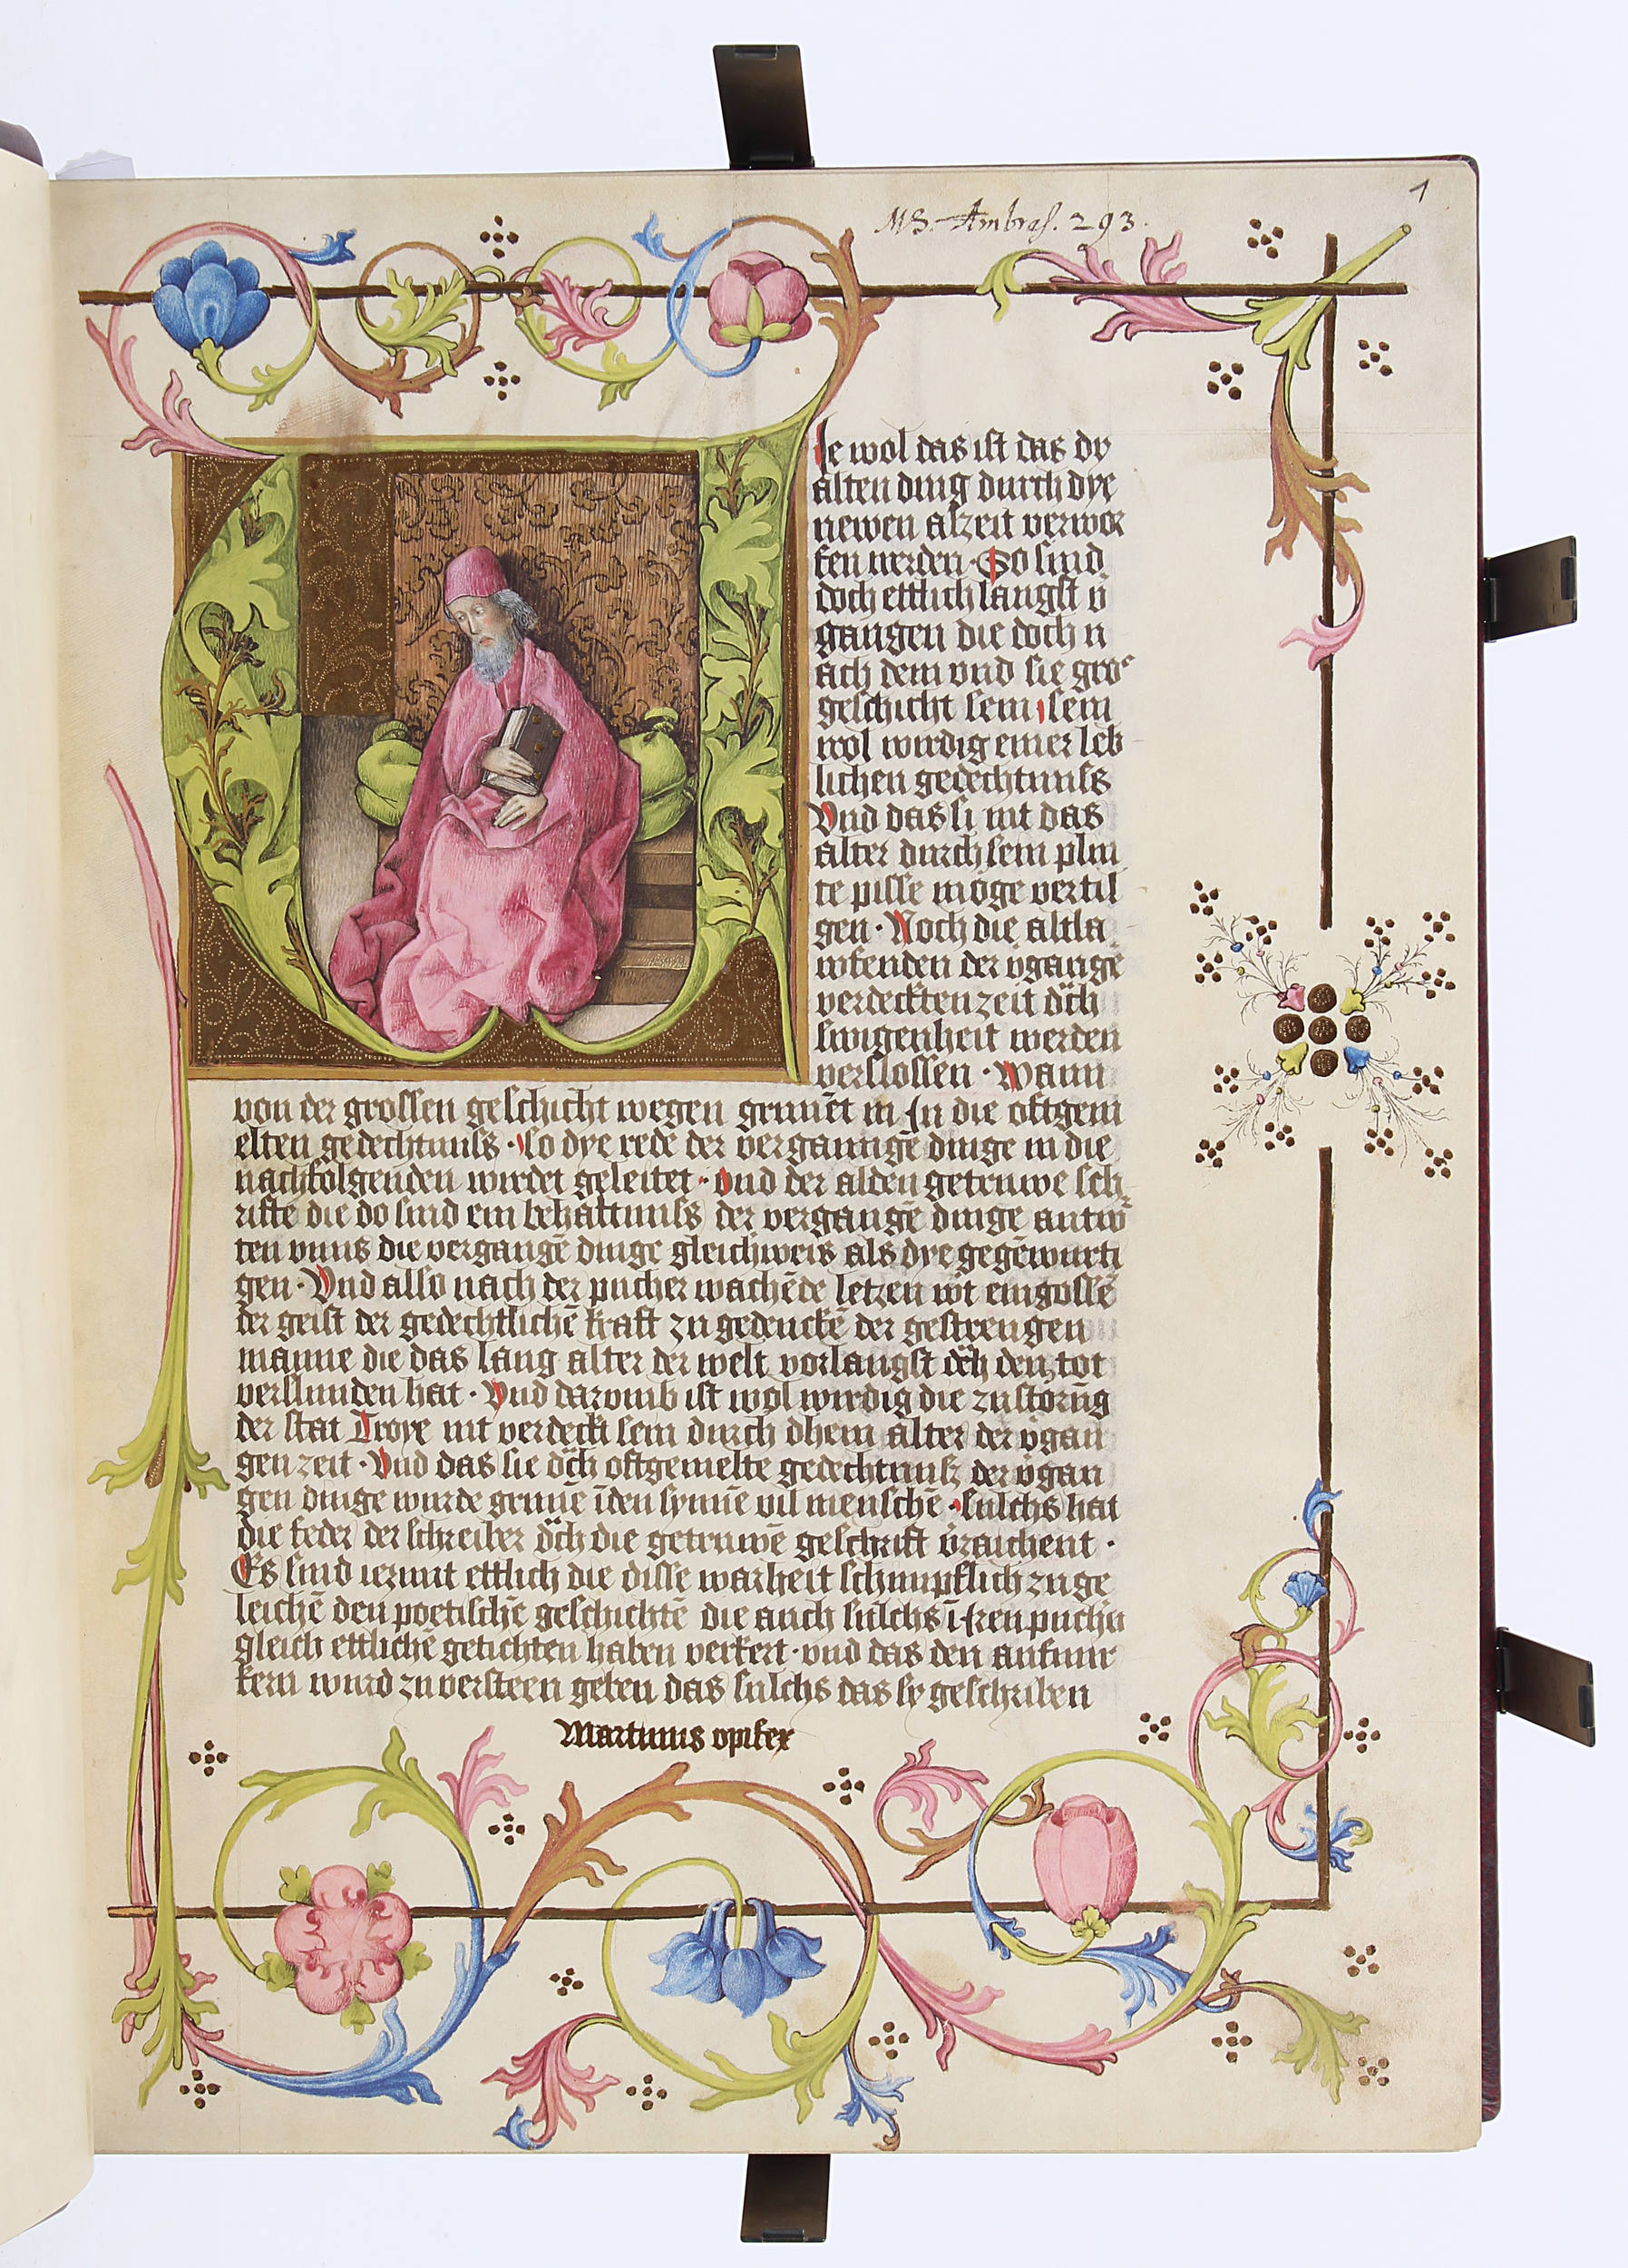 1
MS. Ambras. 293.
Ie wol das ist das dy
alten ding durch dye
newen alzeit verwor
fen werden · So sind
doch ettlich langst v̄
gangen die doch n
ach dem vnd sie gros
geschicht sein sein
wol wirdig einer leb
lichen gedechtnuss
Vnd das si nit das
alter durch sein plin
te pisse moge vertil
gen · Noch die altla
wfenden der vgange
verdeckten zeit dch
swigenheit werden
verslossen · wann
von der grossen geschicht wegen grunet in In die oftgem
elten gedechtnuss · so dye rede der vergangē dinge in die
nachfolgenden wirdet geleitet · vnd der alden getruwe sch
rifte die do sind ein behaltnuss der vergangē dinge antw
ten vnns die vergangē dinge gleichweis als dye gegēwurti
gen · Vnd also nach der pucher wachēde letzen wt eingossē
der geist der gedechtlichē kraft zu gedenckē der gestrengen
manne die das lang alter der welt vorlangst dch den tot
verslunden hat · Vnd darvmb ist wol wirdig die zustorūg
der stat Troye nit verdeckt sein durch dhein alter der vgan
gen zeit · Vnd das sie dch oftgemelte gedechtnuß der vgan
gen dinge wurde grunē īden synnē vil menschē · sulchs hat
die feder der schreiber dch die getruwē geschrift vzaichent ·
Es sind iezunt ettlich die disse warheit schimpflich zu ge
leichē den poetischē geschichtē die auch sulchs ī iren puchn
gleich ettlichē getichten haben verkert · vnd das den aufmir
kern wurd zu versteen geben das sulchs das sy geschriben
Martinus opifex